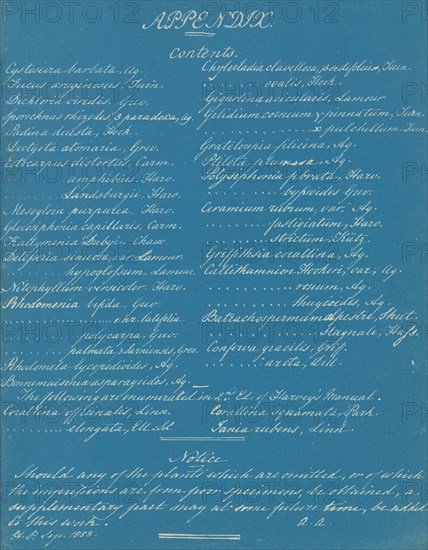 APPENDIX.
Contents.
Cystoseira barbata, Ag.
Fucus
Dichloria viridis, Grev.
Sporochnus rhizodes, β paradoxa, Ag.
Padina deusta, Hook.
Dictyota atomaria, Grev.
Ectocarpus distortus, Carm.
amphibius, Harv.
Landsburgii, Harv.
Mesogloia purpurea. Harv.
Gloiosiphonia capillaris, Carm.
Kallymenia Dubyi. Chauv
Delesseria sinuosa, var. Lamour.
hypoglossum, Lamour.
Nitophyllum versicolor. Harv.
Rhodomenia bifida, Grev
var.
polycarpa, Grev.
palmata β Sarniensis, Grev.
Rhodomela lycopodioides, Ag.
Bonnemaisonia asparagoides, Ag.
Chylocladia clavellosa,
ovalis, Hook
Gigartina acicularis, Lamour
Gelidium corneum γ pinnatum, Turn.
pulchellum, Turn.
Grateloupia filicina, Ag.
Ptilota plumosa, Ag.
Polysiphonia fibrata, Harv.
byssoides Grev.
Ceramium rubrum, var. Ag.
fastigiatum, Harv.
strictum Kutz.
Griffithsia corallina, Ag.
Callithamnion Hookeri, var, Ag.
Ag.
Ag.
Batrachospermum
stagnale, Hass.
Conferva gracilis, Griff.
arcta, Dill.
The following are enumerated in 2nd Ed. of Harvey's Manual.
Corallina officinalis, Linn.
elongata, Ell. & Sol.
Corallina squamata, Park.
Jania rubens, Linn
Notice
Should any of the plants which are omitted, or of which
the impressions are from poor specimens, be obtained, a
supplementary part may at some future time, be added
to this work.
A. A.
1853.
PHOTO12